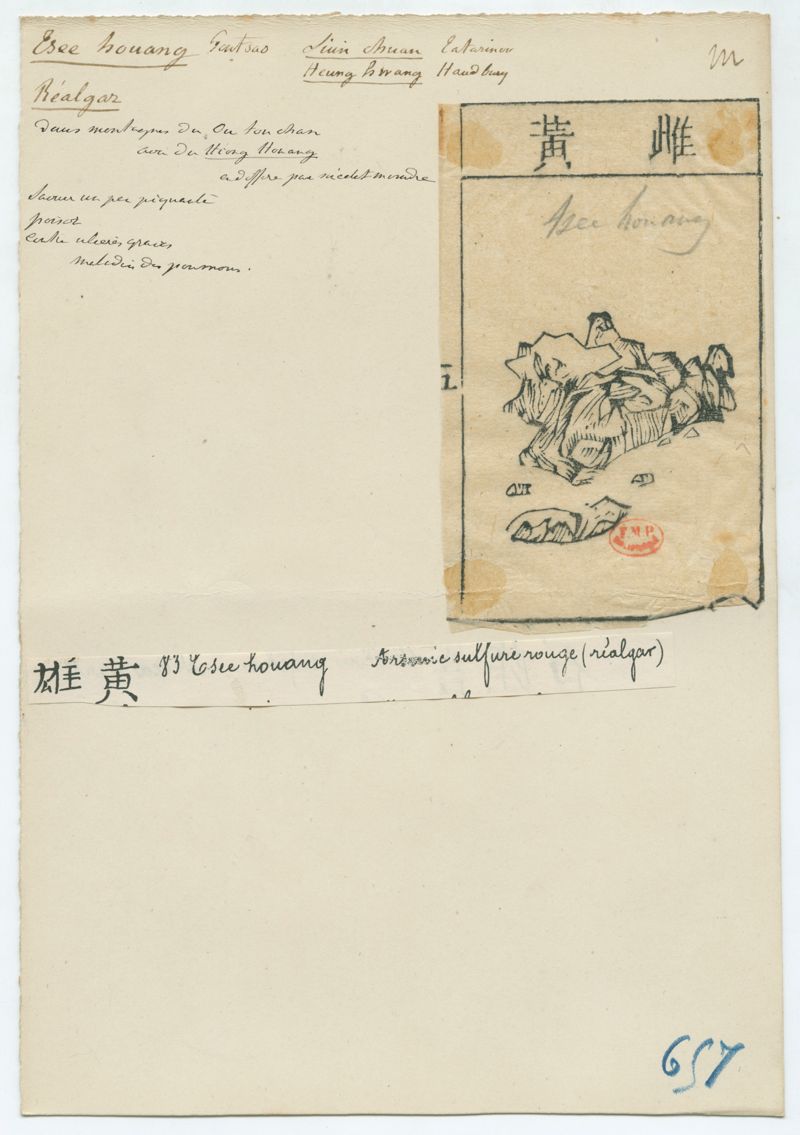 Tsee houang Pent sao Siun chuan Tatarinov
Heung hwang Handbury
m
Réalgar
Dans montagnes du Ou tou chan
avec du Hiong Houang
en diffère par
Saveur un peu piquante
poison
contre ulcères graves
maladies des poumons.
黃 雌
tsee houang
五
雄 黃 83 Tsee houang Arsenic sulfuré rouge (réalgar)
657